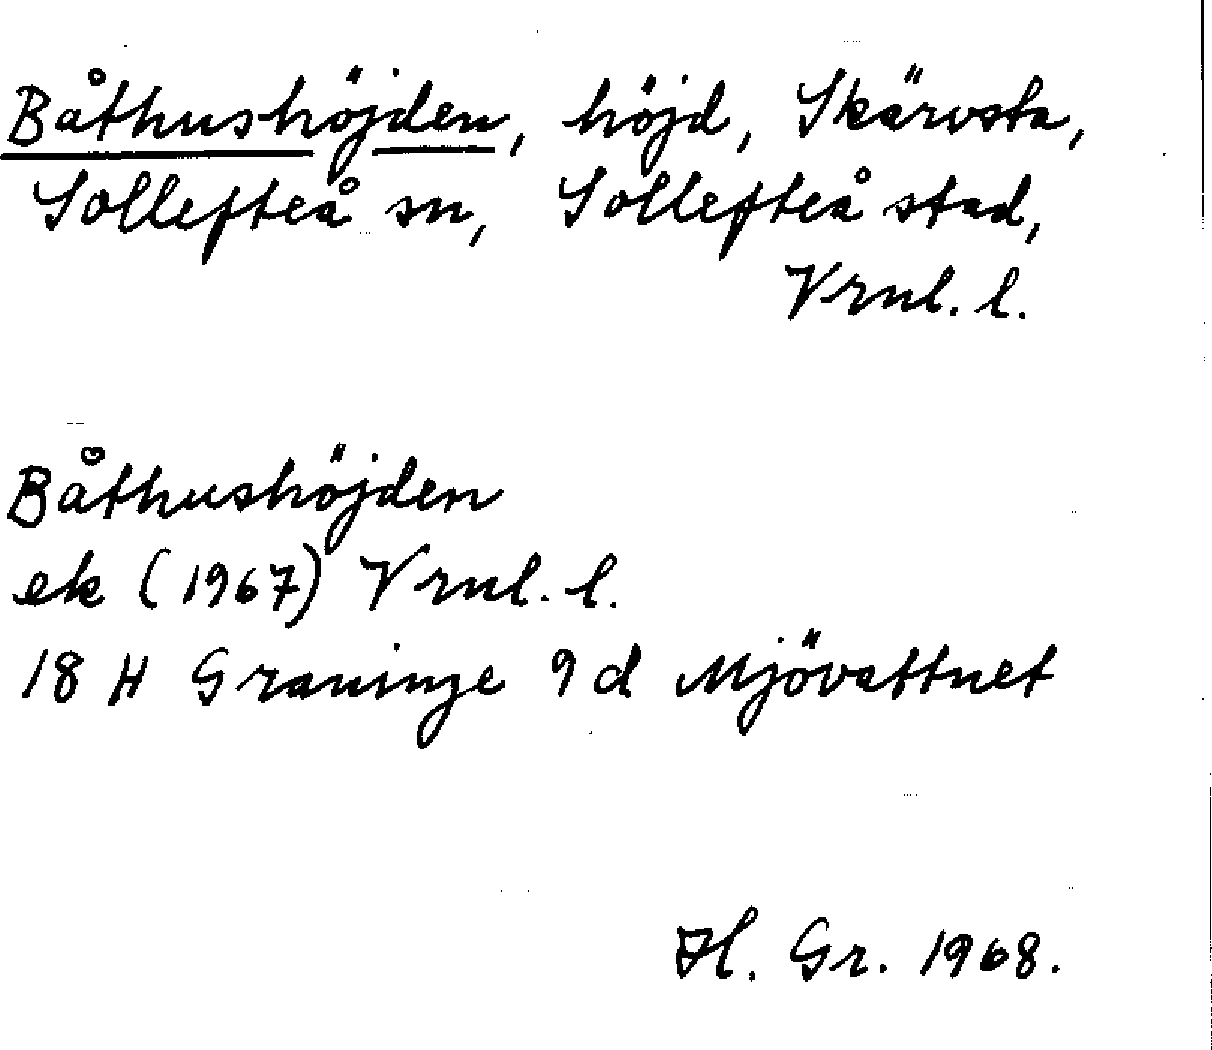 Båthushöjden, höjd, Skärvsta,
Sollefteå sn, Sollefteå stad,
Vrnl. l.
Båthushöjden
ek (1967) Vrnl. l.
18 H Graninge 9 d Mjövattnet
Hl. Gr. 1968.